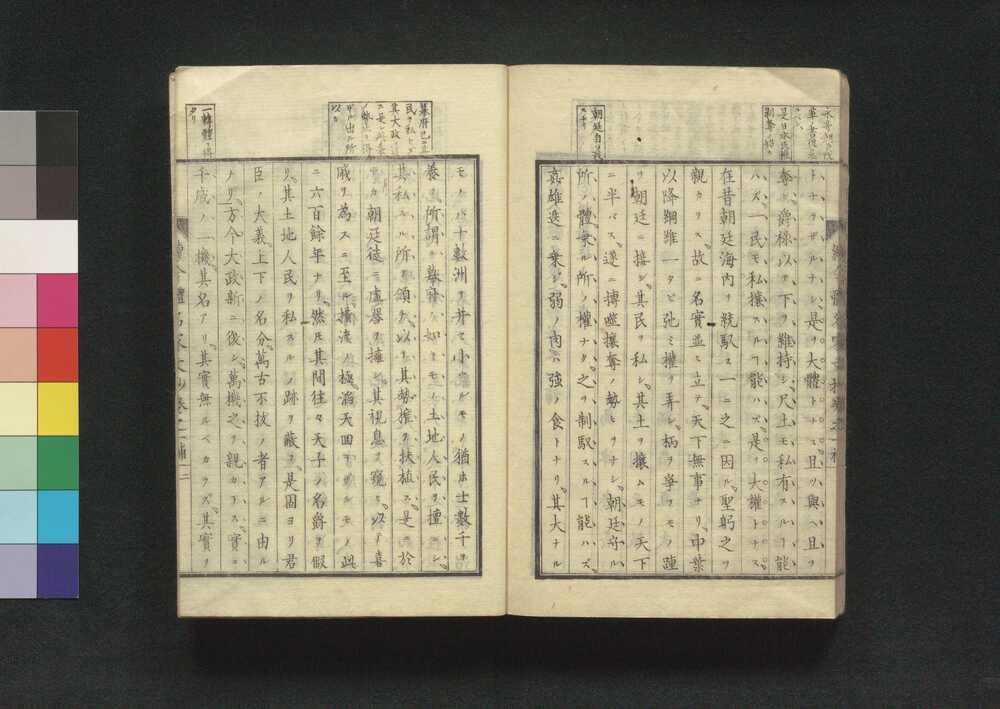 トナラザルナシ。是ヲ大體トス。且ツ與ヘ且ツ
奪シ爵祿以テ下ヲ維持シ尺土モ私有スルヿ能
ハズ。一民モ私攘スルヿ能ハズ。是ヲ大權トナス。
在昔朝廷海内ヲ統馭ス一ニ之ニ因ル。聖躬之ヲ
親カラス。故ニ名實並ヒ立テ天下無事ナリ。中葉
以降綱維一タビ弛ミ權ヲ弄シ柄ヲ爭フモノ踵
ヲ朝廷ニ接シ其民ヲ私シ其土ヲ攘ムモノ天下
ニ半バス。遂ニ搏噬攘奪ノ勢ヒヲナシ。朝廷守ル
所ノ體。秉ル所ノ權ナク。之ヲ制馭スルヿ能ハズ。
姦雄迭ニ乗ジ弱ノ肉ハ强ノ食トナリ。其大ナル
朝廷自
モノハ十數洲ヲ并セ小ナルモノ猶ホ士數千ヲ
養フ。所謂ル幕府ノ如キモノ土地人民ヲ擅ニシ。
其私スル所ニ頒チ。以テ其勢權ヲ扶植ス。是ニ於
テカ朝廷徒ニ虚器ヲ擁シ其視息ヲ窺ヒ。以テ喜
戚ヲ為スニ至ル。横流ノ極。滔天回ヲザルモノ茲
ニ六百餘年ナリ。然圧其間往々天子ノ名爵ヲ假
リ。其土地人民ヲ私スルノ跡ヲ蔽フ。是固ヨリ君
臣ノ大義。上下ノ名分。萬古不拔ノ者アルニ由ル
ナリ。方今大政新ニ復シ。萬機之ヲ親カラス。實ニ
千歳ノ一機其名アリ。其實無ルベカラズ。其實ヲ